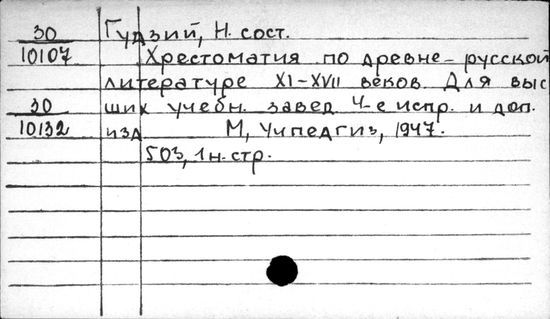 30 Гудзий, Н. сост.
10107 Хрестоматия по древне-русской
литературе XI-XVII веков. Для выс
30 ших учебн. завед. 4-е испр. и доп.
10132 изд М, Учпедгиз, 1947.
503, 1 н. стр.